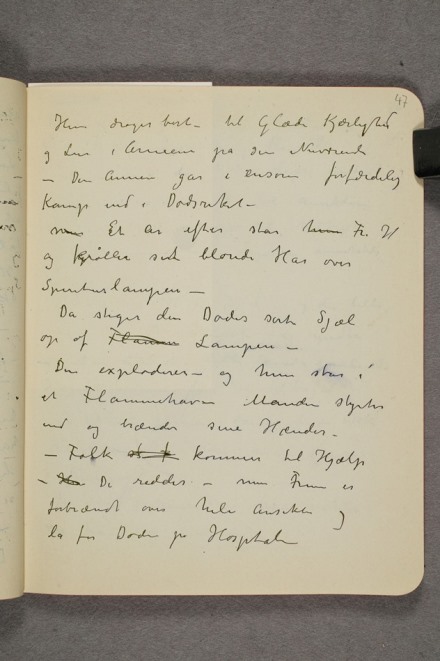 47
Hun drages bort – til Glæde Kærlighed
og Lun i Armene på den Nuværende
– Den Annen går i ensom forfærdelig
Kamp ind i Dødsriket –
Et år efter står hun Fr. H
og krøller sit blonde Hår over
Spirituslampen –
Da stiger den Dødes sorte Sjæl
op af Flammen Lampen –
Den exploderer – og hun står i
et Flammehav Manden styrter
ind og brænder sine Hænder –
– Folk kommer til Hjælp
– De reddes – men Fruen er
forbrændt over hele Ansiktet
lå for Døden på Hospitalet